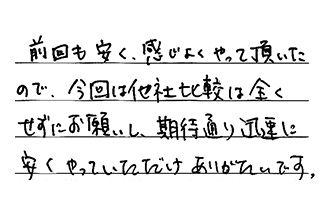 前回も安く、感じよくやって頂いた
ので、今回は他社比較は全く
せずにお願いし、期待通り迅速に
安くやっていただけありがたいです。